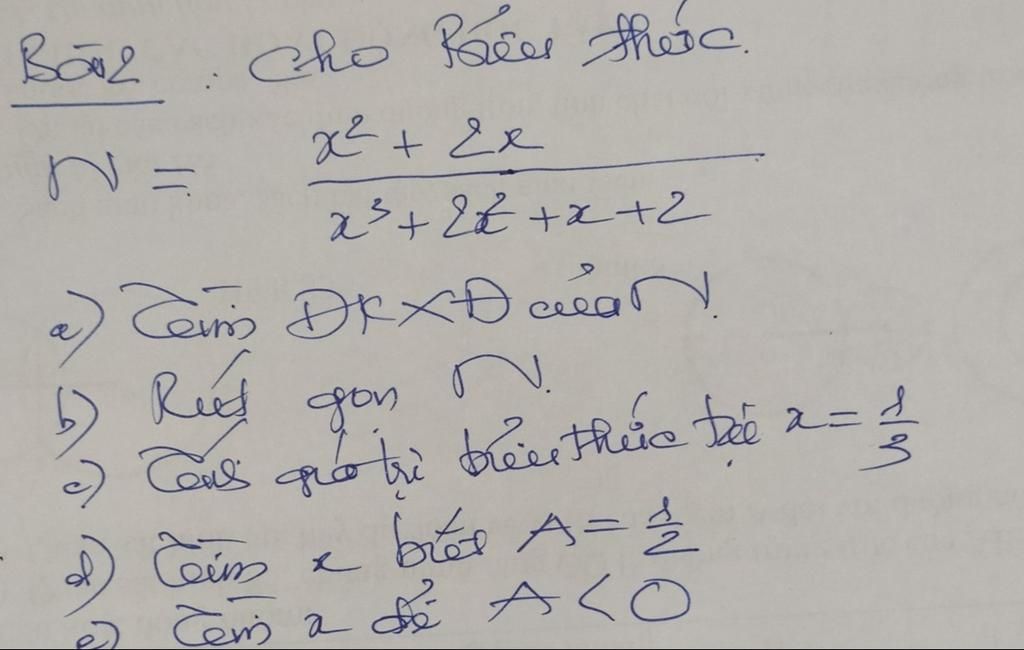 Bài 2 : Cho Biểu thức.
N = (x² + 2x) / (x³ + 2x² + x + 2)
a) Tìm ĐKXĐ của N.
b) Rút gọn N.
c) Tính giá trị biểu thức tại x = 1/3
d) Tìm x biết A = 1/2
e) Tìm x để A < 0